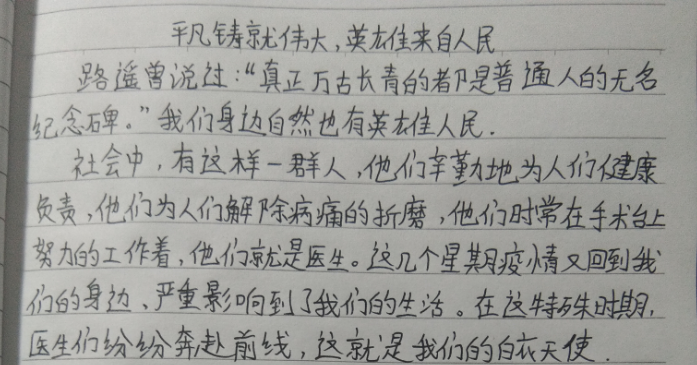 平凡铸就伟大，英雄来自人民
路遥曾说过：“真正万古长青的都是普通人的无名
纪念碑。”我们身边自然也有英雄人民.
社会中，有这样一群人，他们辛勤地为人们健康
负责，他们为人们解除病痛的折磨，他们时常在手术台上
努力的工作着，他们就是医生。这几个星期疫情又回到我
们的身边、严重影响到了我们的生活。在这特殊时期，
医生们纷纷奔赴前线，这就是我们的白衣天使.